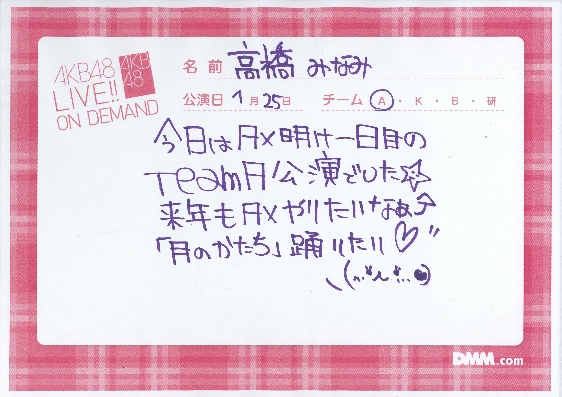 AKB48
LIVE!!
ON DEMAND
AKB
48
名前 高橋 みなみ
公演日 1月25日 チーム A・K・B・研
今日はリ×明け一日目の
TeamA公演でした☆
来年もリ×やりたいなぁ⤴
「月のかたち」踊りたい♡"
DMM.com